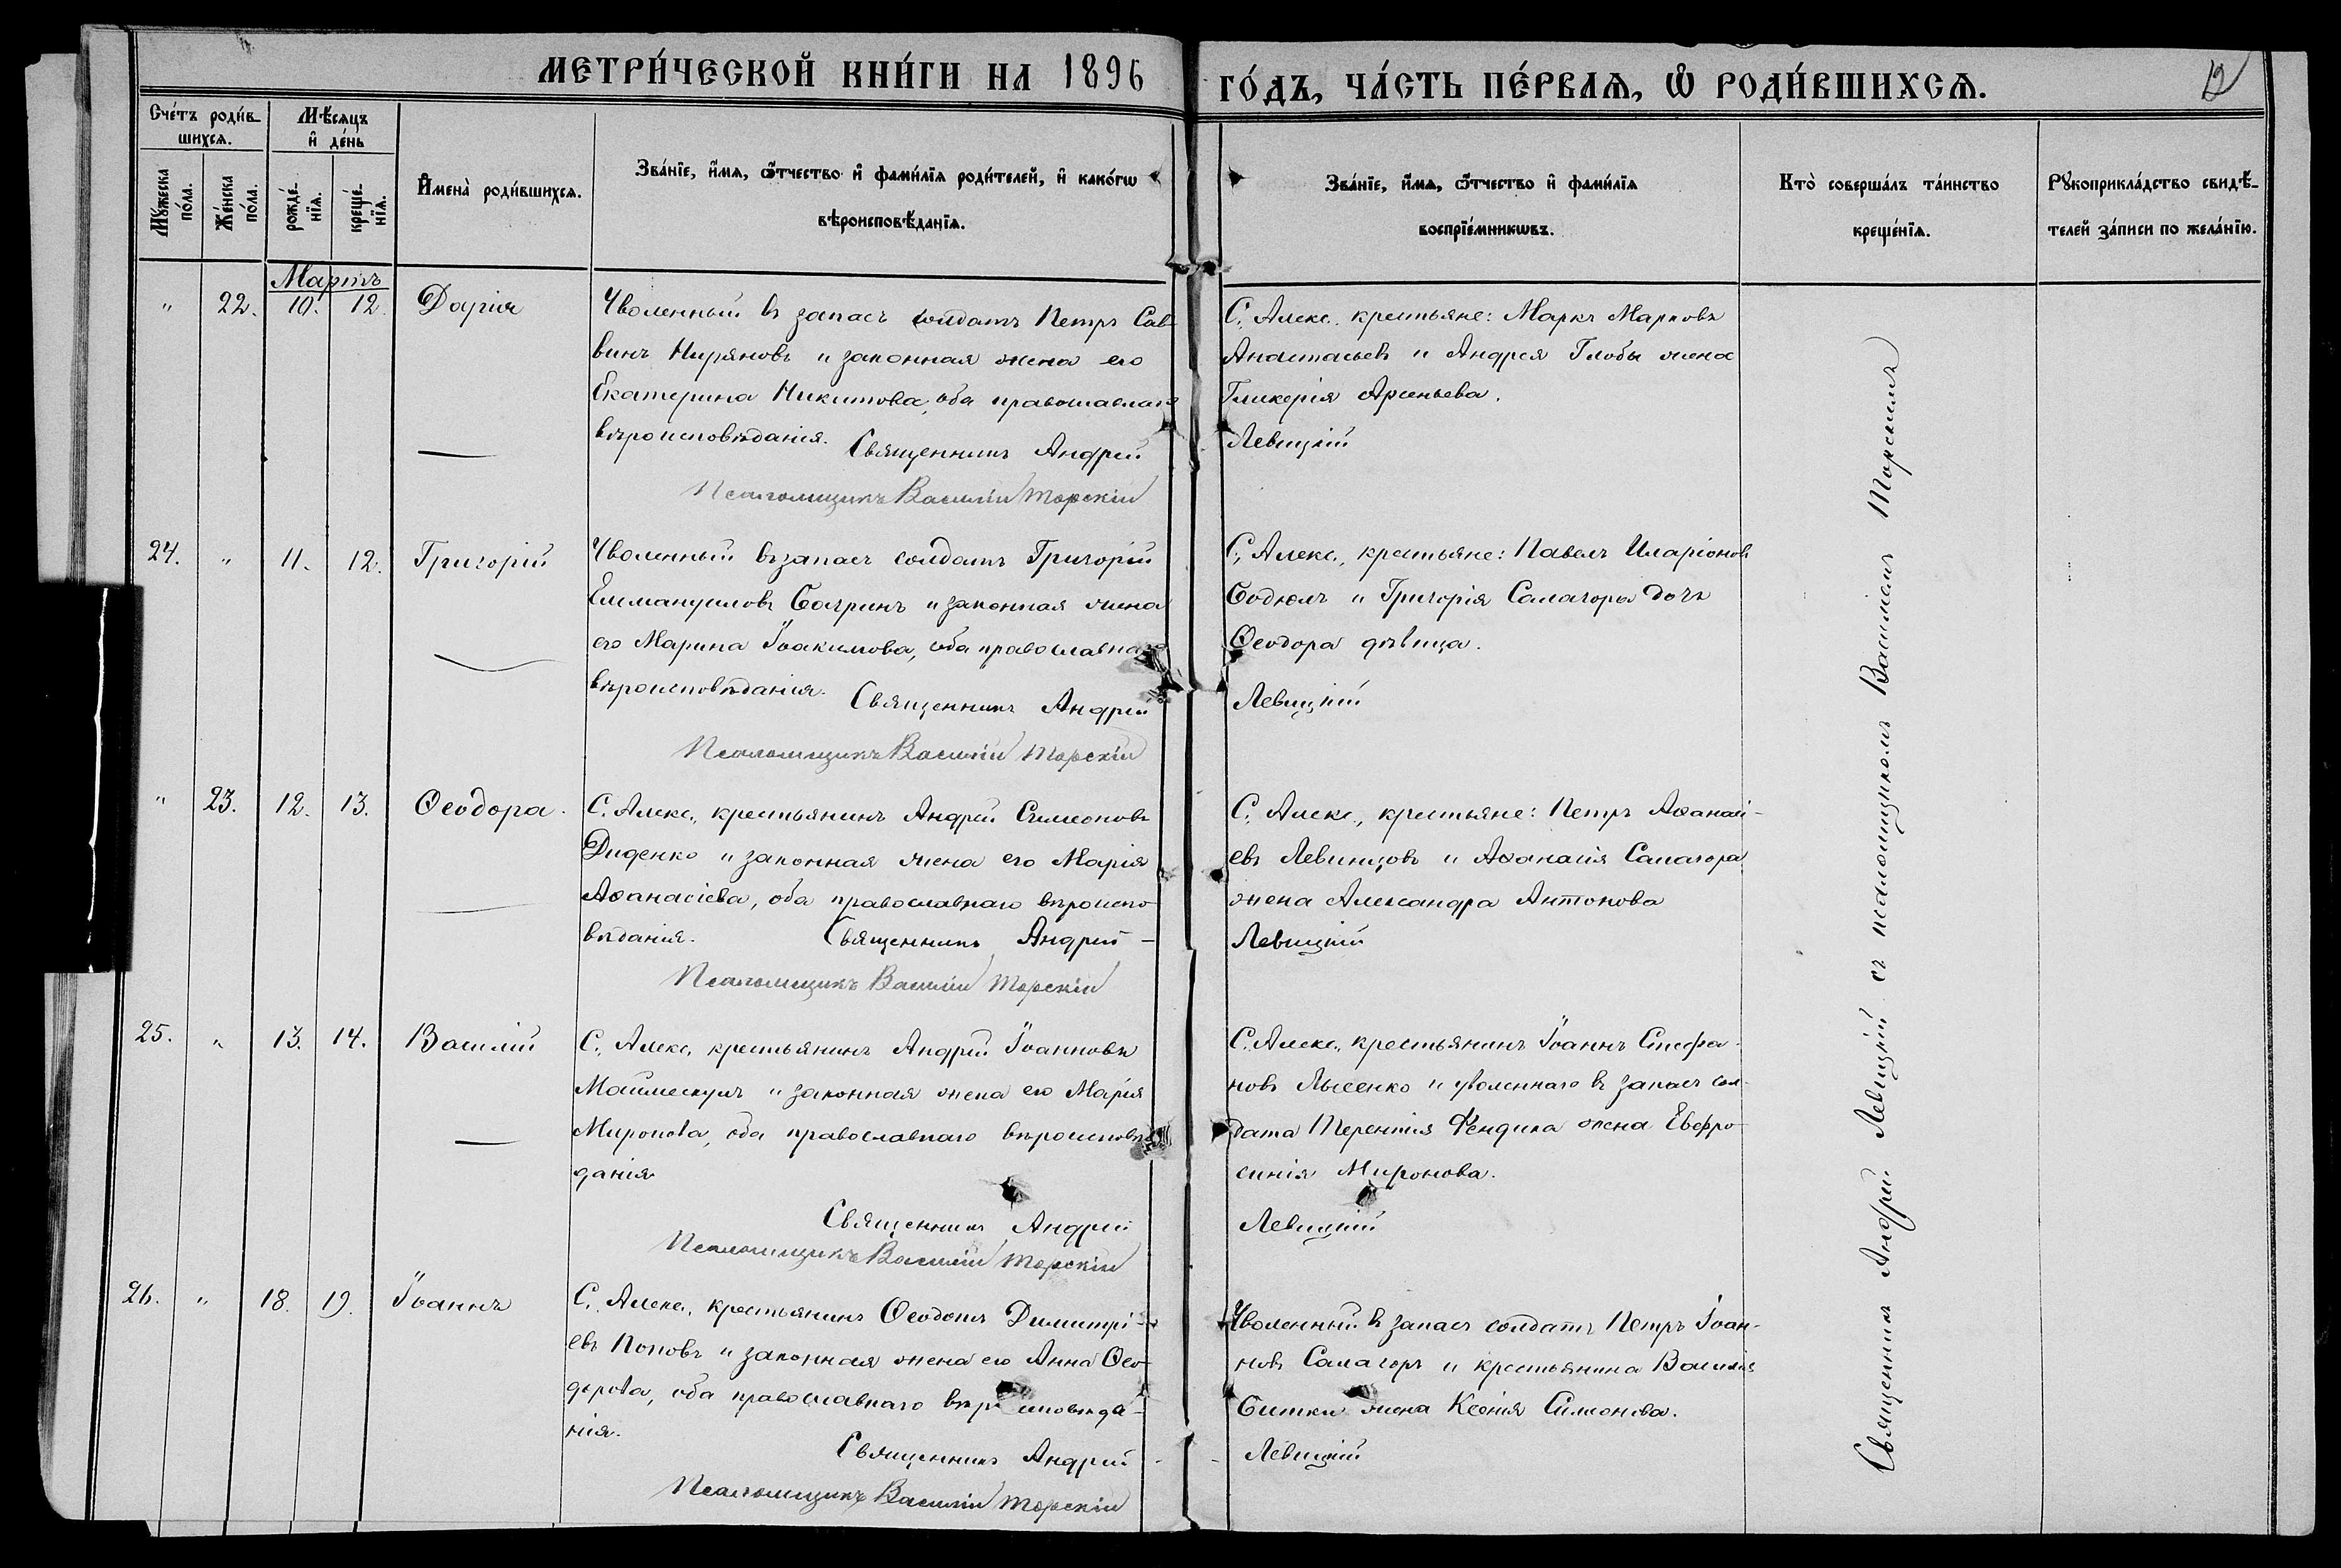 МЕТРИ́ЧЕСКОЙ КНИ́ГИ НА 1896 ГО́ДЪ, ЧА́СТЬ ПЕ́РВАѦ, Ѽ РОДИ́ВШИХСѦ.
12
Сче́тъ роди́в-
шихсѧ.
Мѣ́сѧцъ
и҆ де́нь
Мꙋ́жеска
по́ла.
Же́нска
по́ла.
рожде́-
нїѧ.
креще́-
нїѧ.
И҆мена̀ роди́вшихсѧ.
Зва́нїе, и҆́мѧ, ѻ҆́тчество и҆ фами́лїѧ роди́телей, и҆ како́гѡ
вѣроисповѣ́данїѧ.
Зва́нїе, и҆́мѧ, ѻ҆́тчество и҆ фами́лїѧ
воспрїе́мникѡвъ.
Кто̀ соверша́лъ та́инство
креще́нїѧ.
Рꙋкоприкла́дство свидѣ́-
телей за́писи по жела́нїю.
Мартъ
" 22. 10. 12. Дарія
Уволенный въ запасъ солдатъ Петръ Сав-
винъ Киряновъ и законная жена его
Екатерина Никитова, оба православнаго
вѣроисповѣданія. Священникъ Андрей
Псаломщикъ Василій Торскій
С. Алекс. крестьяне: Маркъ Марковъ
Анастасьевъ и Андрея Глобы жена
Гликерія Арсеньева.
Левицкій
24. " 11. 12. Григорій
Уволенный въ запасъ солдатъ Григорій
Еммануиловъ Багринъ и законная жена
его Марина Іоакимова, оба православнаго
вѣроисповѣданія. Священникъ Андрей
Псаломщикъ Василій Торскій
С. Алекс., крестьяне: Павелъ Иларіоновъ
Бодюлъ и Григорія Самагоры дочь
Ѳеодора дѣвица.
Левицкій
" 23. 12. 13. Ѳеодора.
С. Алекс., крестьянинъ Андрей Симеоновъ
Диденко и законная жена его Марія
Аѳанасіева, оба православнаго вѣроиспо-
вѣданія. Священникъ Андрей -
Псаломщикъ Василій Торскій
С. Алекс., крестьяне: Петръ Аѳанасі-
евъ Левинцовъ и Аѳанасія Самагора
жена Александра Антонова
Левицкій
25. " 13. 14. Василій
С. Алекс. крестьянинъ Андрей Іоанновъ
Маймескулъ и законная жена его Марія
Миронова, оба православнаго вѣроисповѣ-
данія.
Священникъ Андрей
Псаломщикъ Василій Торскій
С. Алекс., крестьянинъ Іоаннъ Стефа-
новъ Лысенко и уволеннаго въ запасъ сол-
дата Терентія Фендика жена Евфро-
синія Миронова.
Левицкій
26. " 18. 19. Іоаннъ
С. Алекс., крестьянинъ Ѳеодотъ Димитрі-
евъ Поповъ и законная жена его Анна Ѳео-
дорова, оба православнаго вѣроисповѣда-
нія.
Священникъ Андрей -
Псаломщикъ Василій Торскій
Уволенный въ запасъ солдатъ Петръ Іоан-
новъ Самагоръ и крестьянина Василія
Битки жена Ксенія Симонова.
- Левицкій
Священникъ Андрей Левицкій съ псаломщикомъ Василіемъ Торскимъ